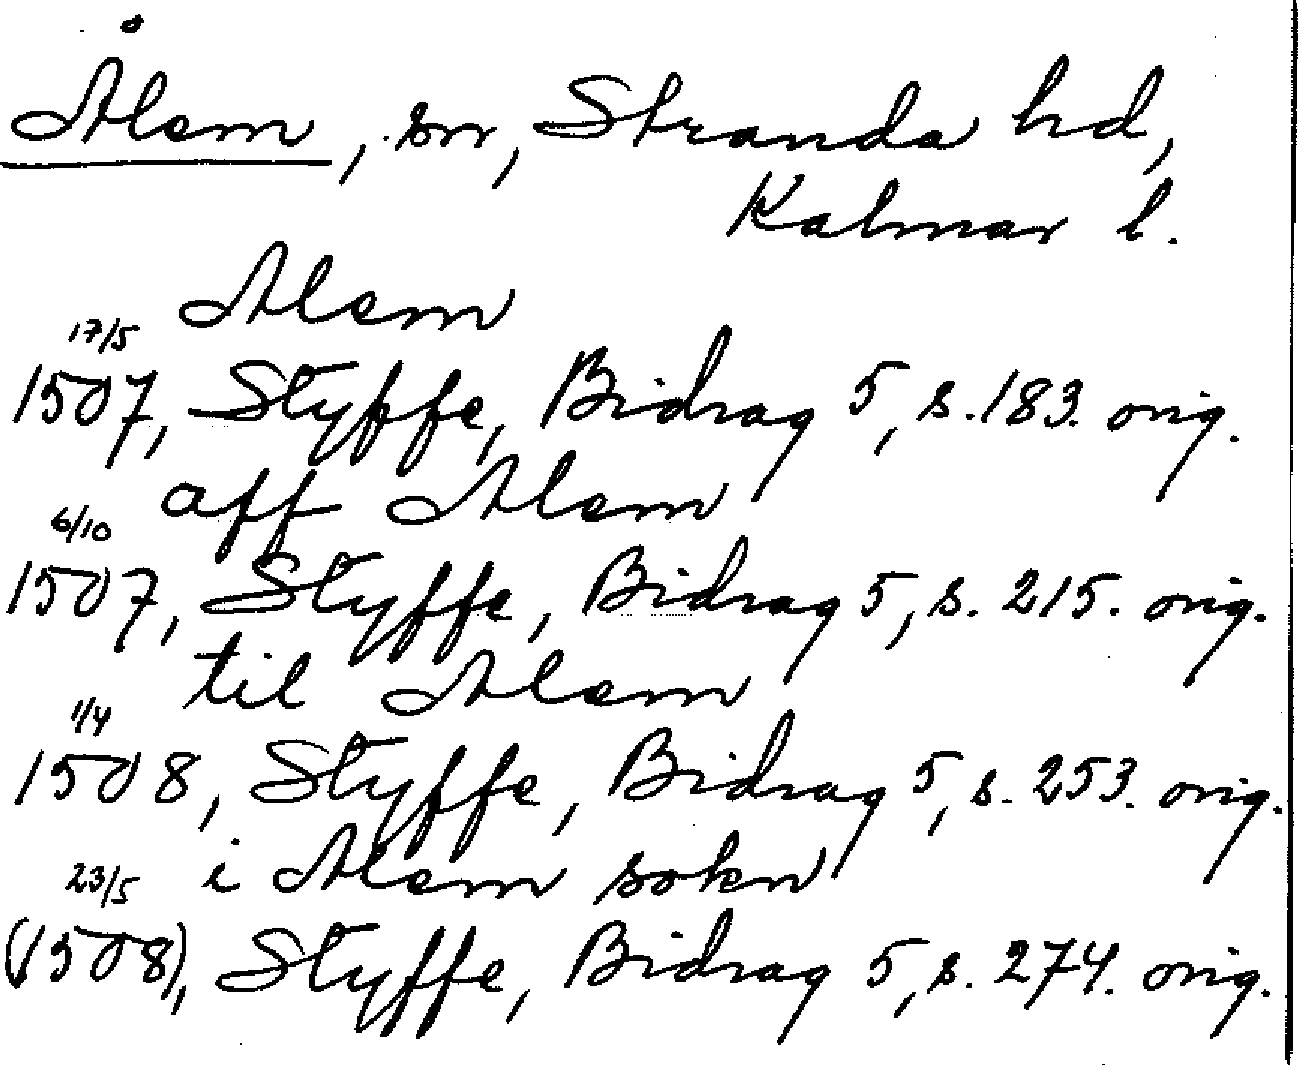 Ålem, sn, Stranda hd,
Kalmar l.
Alem
17/5
1507, Styffe, Bidrag 5, s. 183. orig.
aff Alem
6/10
1507, Styffe, Bidrag 5, s. 215. orig.
til Alem
1/4
1508, Styffe, Bidrag 5, s. 253. orig.
i Alem sokn
23/5
(1508), Styffe, Bidrag 5, s. 274. orig.